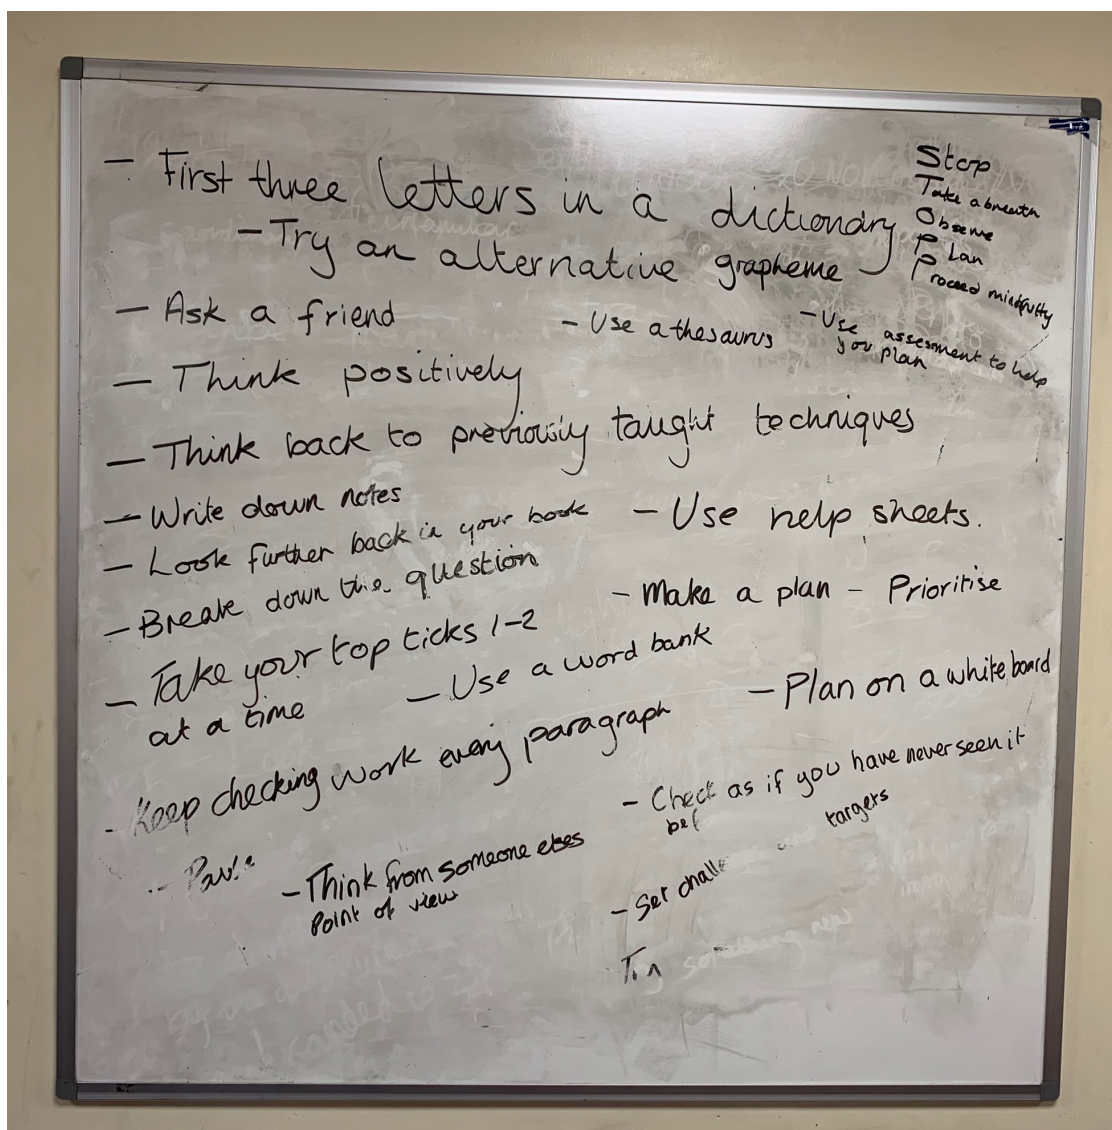 - First three letters in a dictionary
- Try an alternative grapheme
Stop
Take a breath
Observe
Plan
Proceed mindfully
- Ask a friend
- Use a thesaurus
- Use assessment to help
you plan
- Think positively
- Think back to previously taught techniques
- Write down notes
- Use help sheets.
- Look further back in your book
- Break down the question
- Make a plan - Prioritise
- Take your top ticks 1-2
at a time
- Use a word bank
- Plan on a whiteboard
- Keep checking work every paragraph
- Check as if you have never seen it
bef
- Pause
- Think from someone elses
Point of view
- Set challe
targets
something new